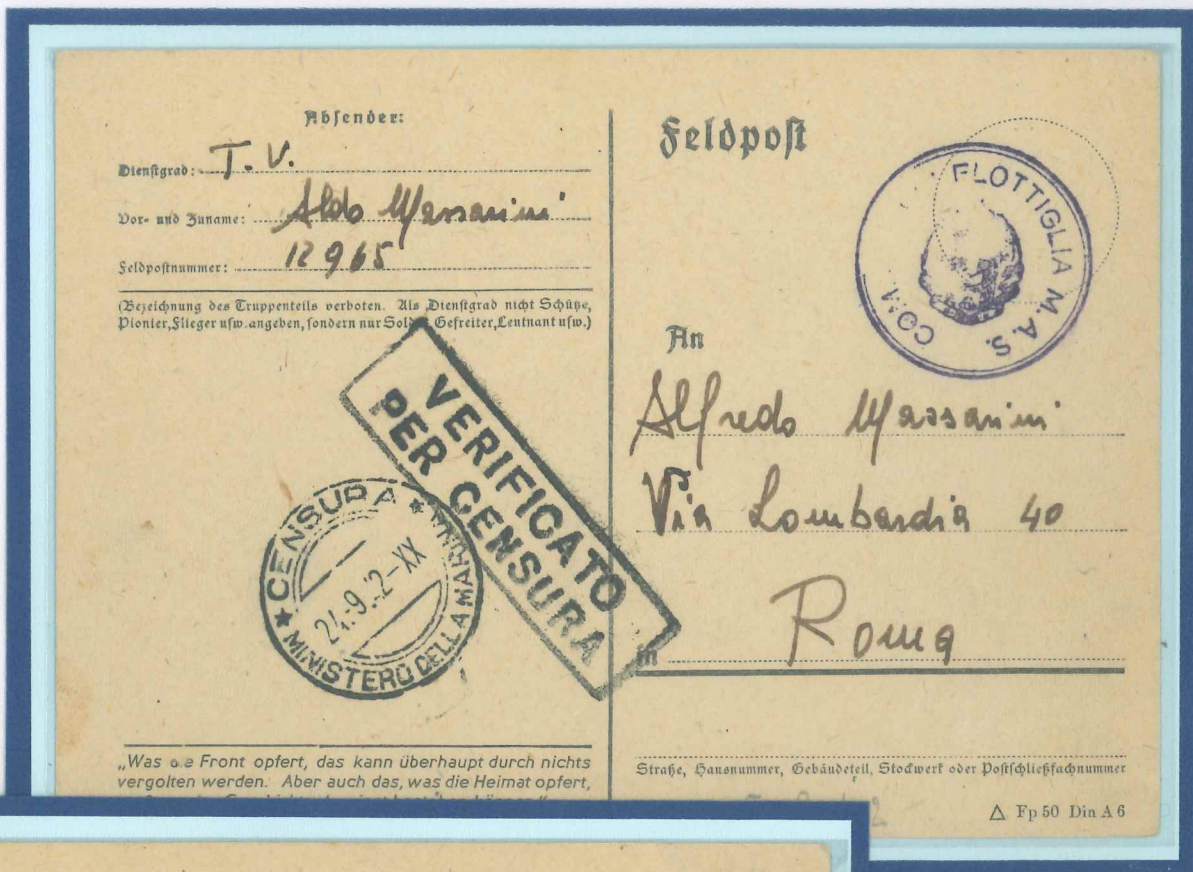 Absender:
Dienstgrad: T. V.
Vor- und Zuname: Aldo Massarini
Feldpostnummer: 12965
(Bezeichnung des Truppenteils verboten. Als Dienstgrad nicht Schütze,
Pionier, Flieger usw. angeben, sondern nur Gefreiter, Leutnant usw.)
VERIFICATO
PER CENSURA
★ CENSURA ★
MINISTERO DELLA MARINA
24.9
2-XX
„Was die Front opfert, das kann überhaupt durch nichts
vergolten werden. Aber auch das, was die Heimat opfert,
Feldpost
FLOTTIGLIA M.A.S.
An
Alfredo Massarini
Via Lombardia 40
in Roma
Straße, Hausnummer, Gebäudeteil, Stockwerk oder Postschließfachnummer
△ Fp 50 Din A 6